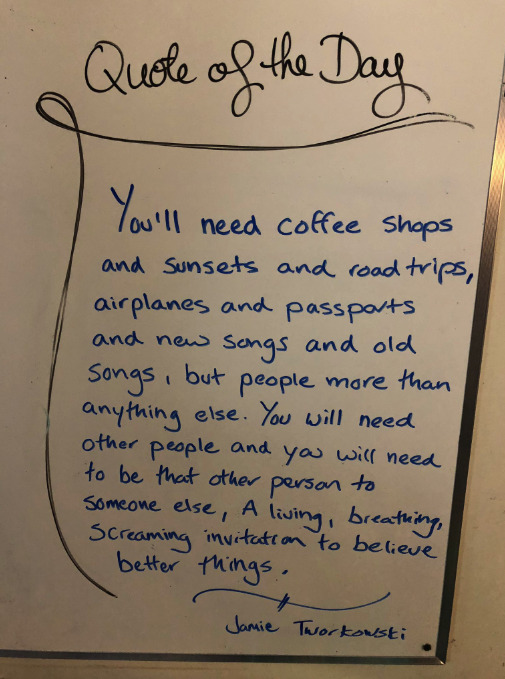 Quote of the Day
You'll need coffee shops
and sunsets and road trips,
airplanes and passports
and new songs and old
songs, but people more than
anything else. You will need
other people and you will need
to be that other person to
someone else, A living, breathing,
screaming invitation to believe
better things.
Jamie Tworkowski